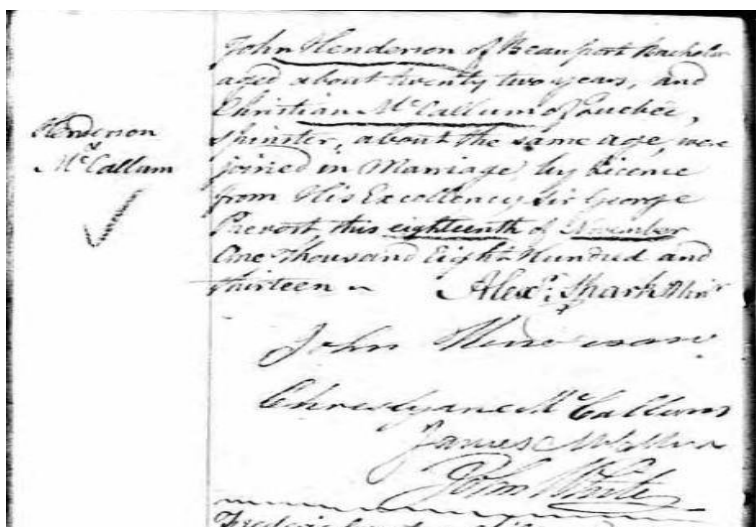 Henderson
&
McCallum
John Henderson of Beauport Bachelor
aged about twenty two years, and
Christian McCallum of Quebec,
spinster, about the same age, were
joined in Marriage, by Licence
from His Excellency Sir George
Prevost, this eighteenth of November
One Thousand Eight Hundred and
thirteen Alexr. Spark Minr
John Henderson
Chrestyane McCallum
James McCallum
John White
Frederic